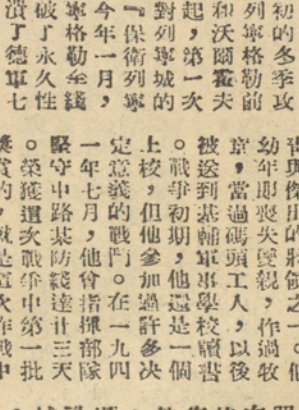 初的冬季攻
列寧格勒前
和沃爾霍夫
起，第一次
對列寧城的
『保衛列寧
今年一月，
寧格勒全綫
破了永久性
潰了德軍七
幼年即喪失雙親，作過牧
京，當過碼頭工人，以後
被送到基輔軍事學校讀書
。戰爭初期，他還是一個
上校，但他參加過許多決
定意義的戰鬥。在一九四
一年七月，他曾指揮部隊
堅守中路某防綫達廿三天
。榮獲這次戰爭中第一批